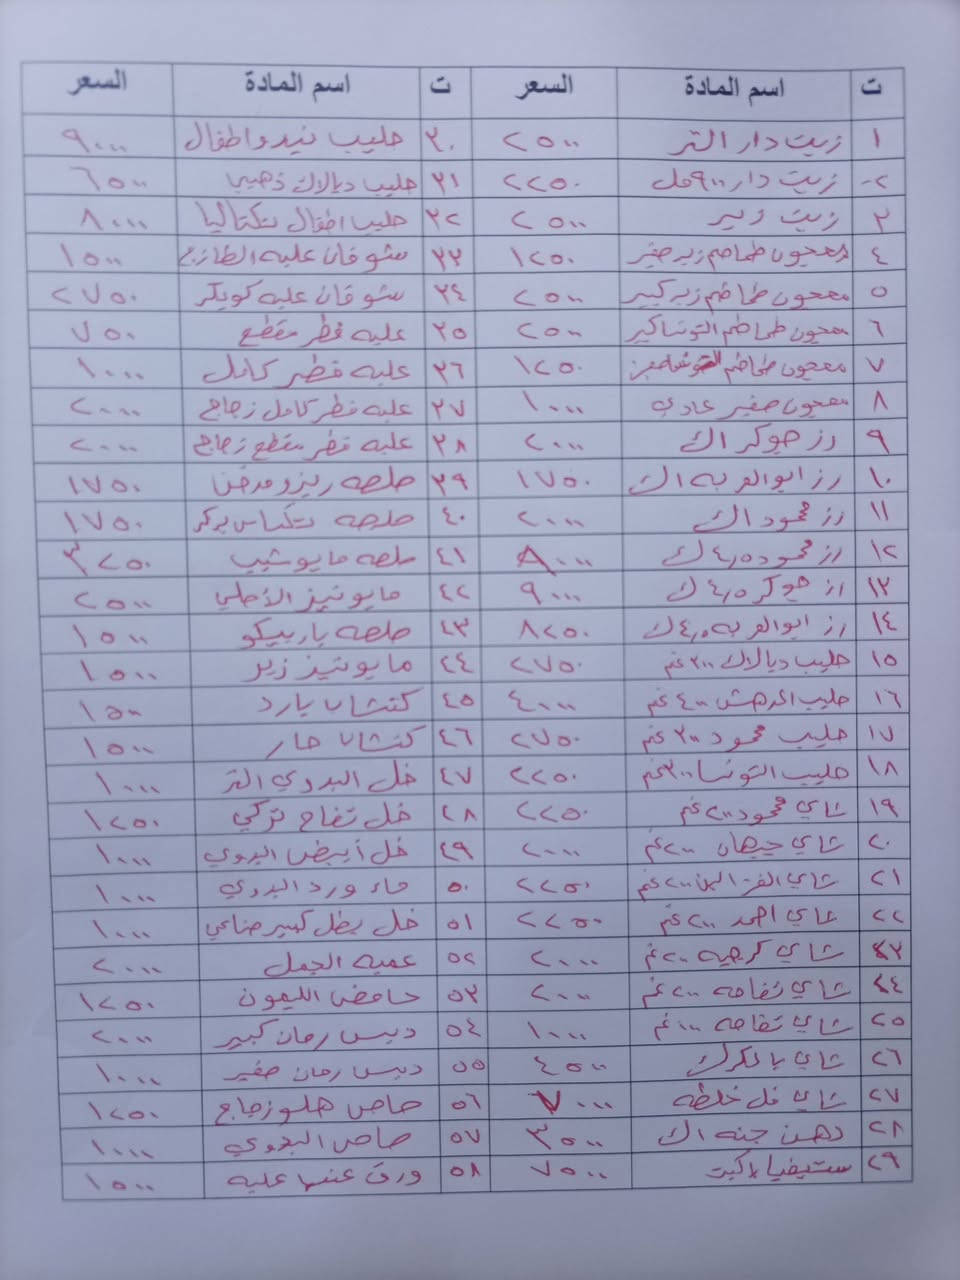 ت اسم المادة السعر ت اسم المادة السعر
١ زيت دار التر ٢٥٠٠ ٣٠ حليب نيدو اطفال ٩٠٠٠
٢- زيت دار ٩٠٠مل ٢٢٥٠ ٣١ حليب ديالاك ذهبي ٦٥٠٠
٣ زيت زير ٢٥٠٠ ٣٢ حليب اطفال سكتاليا ٨٠٠٠
٤ معجون طماطم زير صغير ١٢٥٠ ٣٣ شوفان علبه الطازج ١٥٠٠
٥ معجون طماطم زير كبير ٢٥٠٠ ٣٤ شوفان علبه كويكر ٢٧٥٠
٦ معجون طماطم التونسا كبر ٢٥٠٠ ٣٥ علبه فطر مقطع ٧٥٠
٧ معجون طماطم ١٢٥٠ ٣٦ علبه فطر كامل ١٠٠٠
٨ معجون صغير عادي ١٠٠٠ ٣٧ علبه فطر كامل زجاج ٢٠٠٠
٩ رز جوكر ١ك ٢٠٠٠ ٣٨ علبه فطر مقطع زجاج ٢٠٠٠
١٠ رز ابو العربه ١ك ١٧٥٠ ٣٩ صلصه ريزو مدخن ١٧٥٠
١١ رز محمود ١ك ٢٠٠٠ ٤٠ صلصه تكساس بركر ١٧٥٠
١٢ رز محمود ٤,٥ك ٨٠٠٠ ٤١ صلصه مايوشيب ٣٢٥٠
١٣ رز جوكر ٤,٥ك ٩٠٠٠ ٤٢ مايونيز الاصلي ٢٥٠٠
١٤ رز ابو العربه ٤,٥ك ٨٢٥٠ ٤٣ صلصه باربيكو ١٥٠٠
١٥ حليب ديالاك ٣٠٠غم ٢٧٥٠ ٤٤ مايونيز زير ١٥٠٠
١٦ حليب المدهش ٤٠٠غم ٤٠٠٠ ٤٥ كتشاب بارد ١٥٠٠
١٧ حليب محمود ٣٠٠غم ٢٧٥٠ ٤٦ كتشاب حار ١٥٠٠
١٨ حليب التونسا ٣٠٠غم ٢٢٥٠ ٤٧ خل البدوي التر ١٠٠٠
١٩ شاي محمود ٢٠٠غم ٢٢٥٠ ٤٨ خل تفاح تركي ١٢٥٠
٢٠ شاي جيهان ٢٠٠غم ٢٠٠٠ ٤٩ خل أبيض البدوي ١٠٠٠
٢١ شاي ٢٠٠غم ٢٢٥٠ ٥٠ ماء ورد البدوي ١٠٠٠
٢٢ شاي احمد ٢٠٠غم ٢٢٥٠ ٥١ خل بطل كبير صناعي ١٠٠٠
٢٣ شاي كرجيه ٢٠٠غم ٢٠٠٠ ٥٢ عمبه الجمل ٢٠٠٠
٢٤ شاي تفاحه ٢٠٠غم ٢٠٠٠ ٥٣ حامض الليمون ١٢٥٠
٢٥ شاي تفاحه ١٠٠غم ١٠٠٠ ٥٤ دبس رمان كبير ٢٠٠٠
٢٦ شاي بالكرك ٤٥٠٠ ٥٥ دبس رمان صغير ١٠٠٠
٢٧ شاي فل خلطه ٧٠٠٠ ٥٦ صاص هلو زجاج ١٢٥٠
٢٨ دهن جنه ١ك ٣٥٠٠ ٥٧ صاص البدوي ١٠٠٠
٢٩ ستيفيا ٧٥٠٠ ٥٨ ورق عنب علبه ١٥٠٠